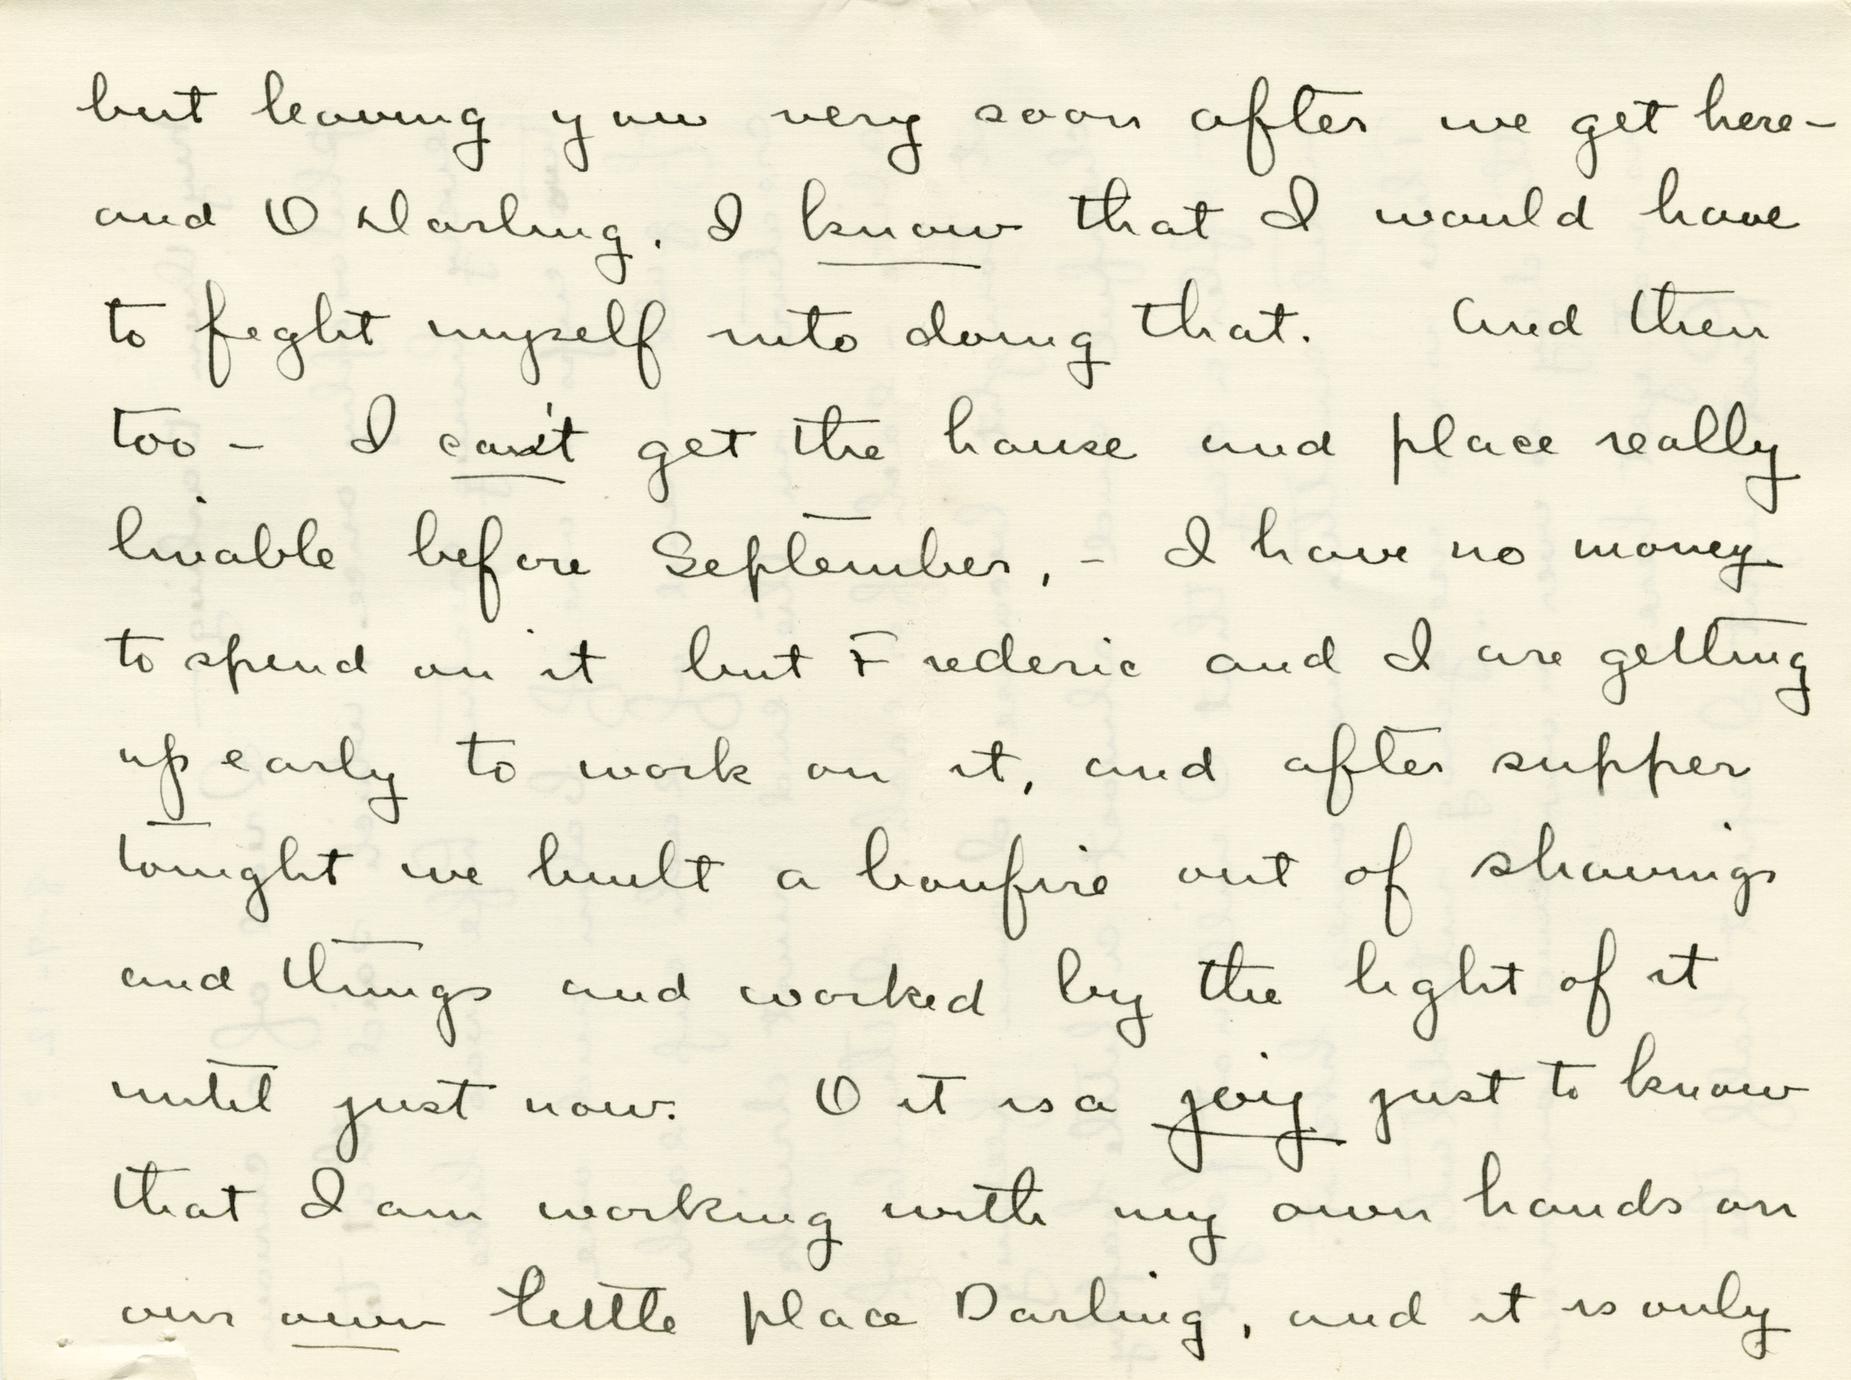 but leaving you very soon after we get here –
and O Darling, I know that I would have
to fight myself into doing that. And then
too – I can't get the house and place really
livable before September, – I have no money
to spend on it but Frederic and I are getting
up early to work on it, and after supper
tonight we built a bonfire out of shavings
and things and worked by the light of it
until just now. O it is a joy just to know
that I am working with my own hands on
our own little place Darling, and it is only